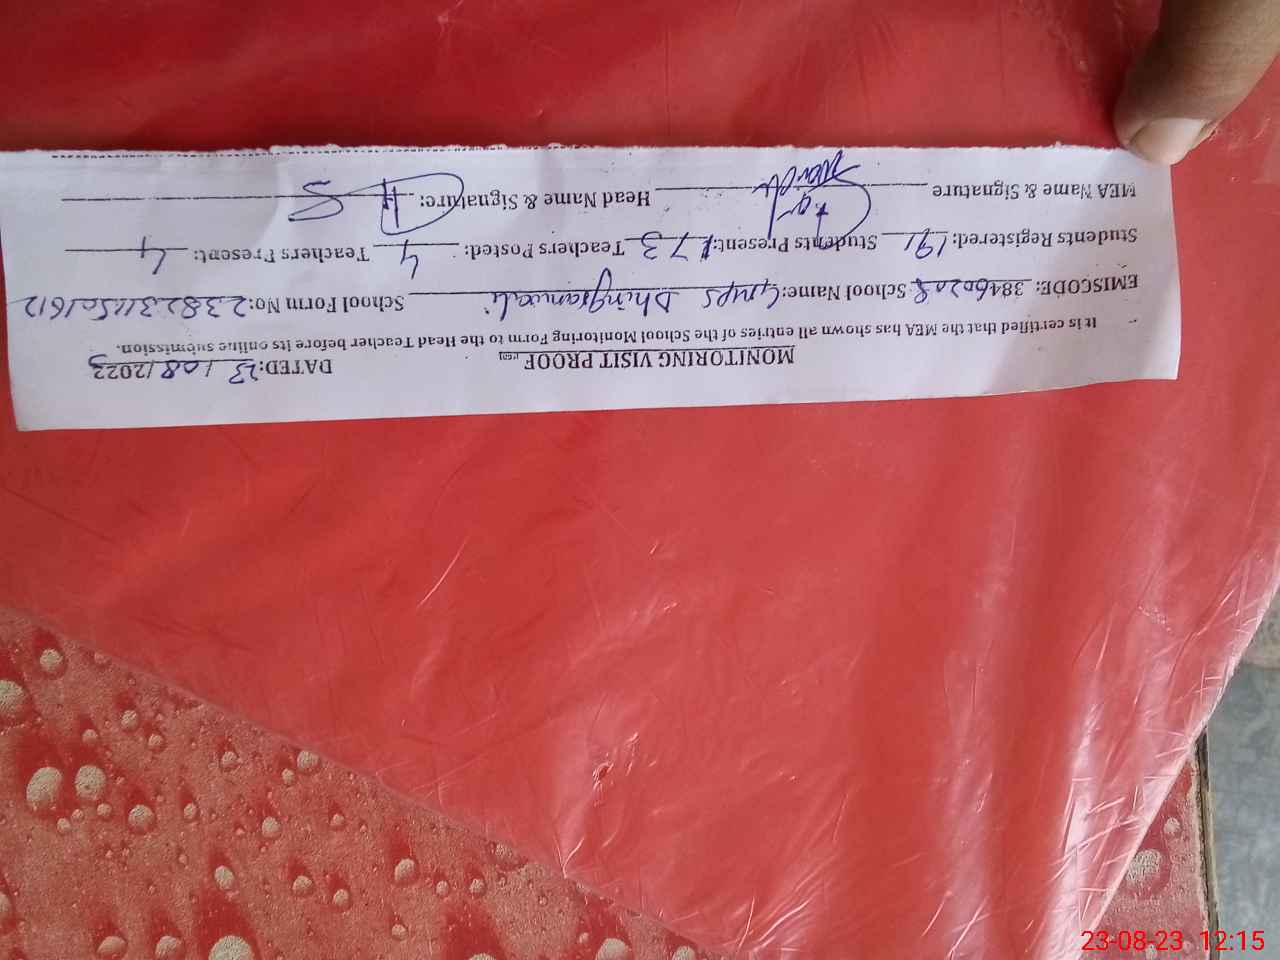 MONITORING VISIT PROOF
DATED: 23/08/2023
It is certified that the MEA has shown all entries of the School Monitoring Form to the Head Teacher before its online submission.
EMISCODE: 38460208 School Name: GMPS Dhingranwali School Form No: 2382311501612
Students Registered: 191 Students Present: 173 Teachers Posted: 4 Teachers Present: 4
MEA Name & Signature Head Name & Signature:
23-08-23 12:15